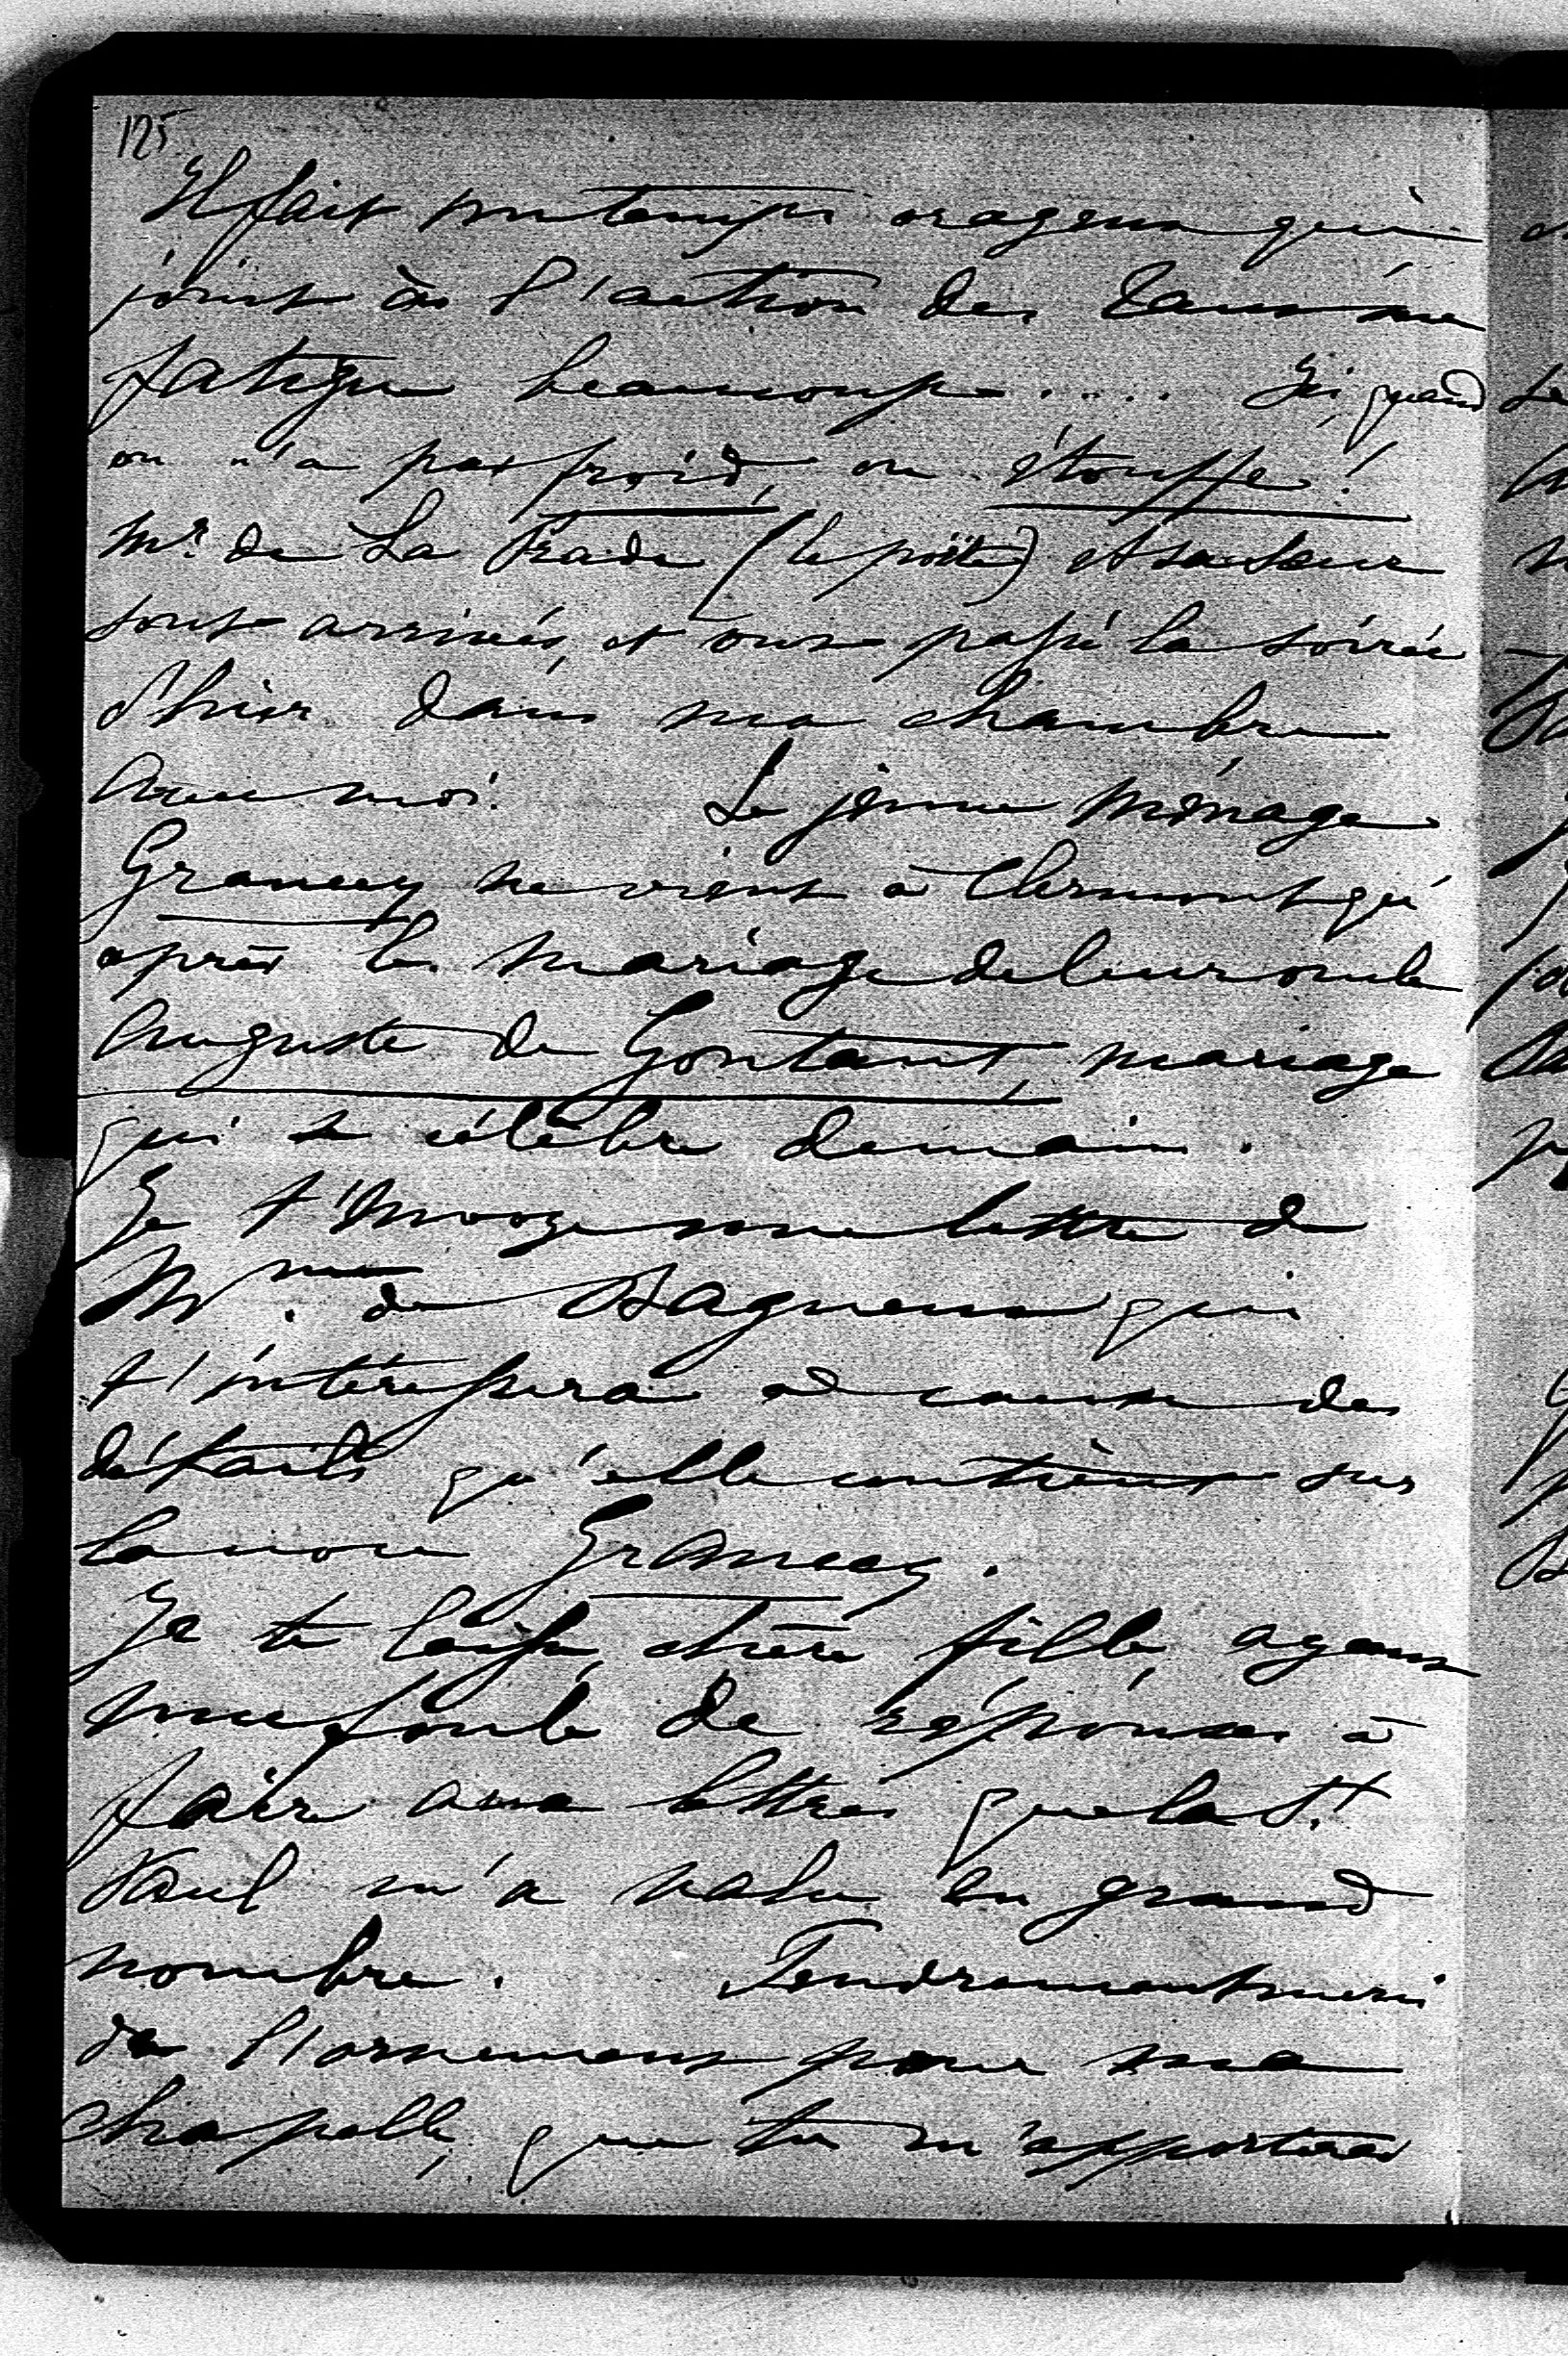 125
Il fait un temps orageux qui
joint à l'action des eaux me
fatigue beaucoup..... Ici, quand
on n'a pas froid, on étouffe!
Mr. de La Prade (le poëte) et sa sœur
sont arrivés, et ont passé la soirée
d'hier dans ma chambre
avec moi. Le jeune ménage
Grancey ne vient à Clermont qu'
après le mariage de leur oncle
Auguste de Gontaut, mariage
qui se célèbre demain.
Je t'envoye une lettre de
Mme. de Bagneux qui
t'intéressera à cause des
détails qu'elle contient sur
la noce Grancey.
Je te laisse, chère fille, ayant
une foule de réponses à
faire aux lettres que la St.
Paul m'a valu en grand
nombre. Tendrement merci
de l'ornement pour ma
chapelle, que tu m'apporteras